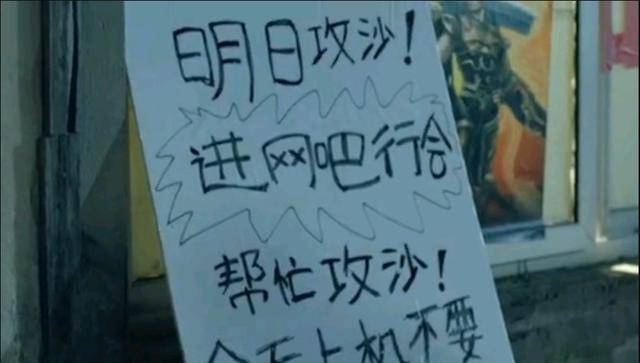 明日攻沙！
进网吧行会
帮忙攻沙！
今天上机不要